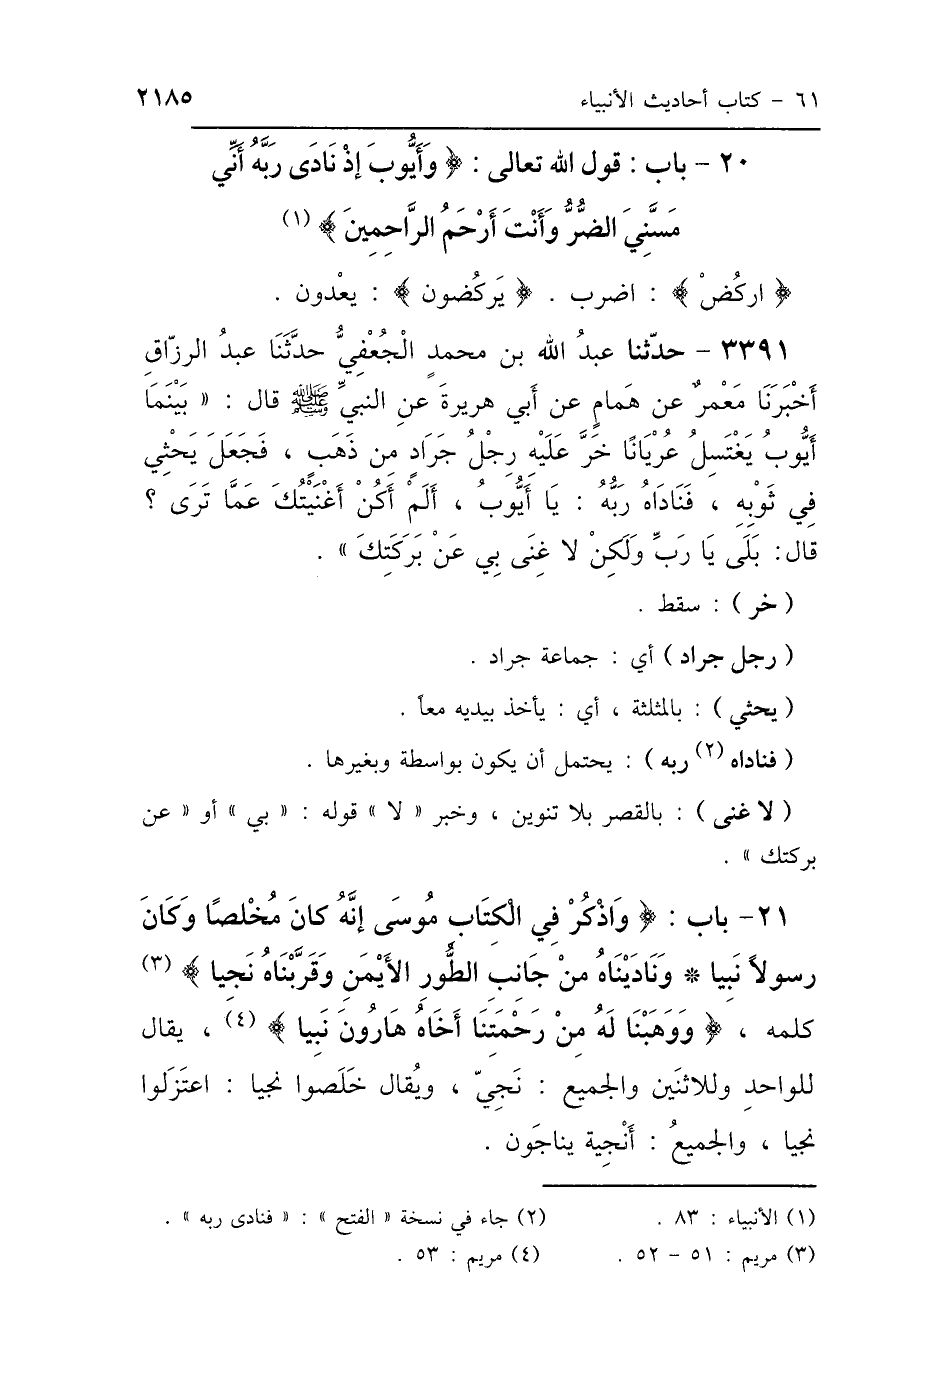 ٦١ - كتاب أحاديث الأنبياء ٢١٨٥
٢٠ - باب : قول الله تعالى : ﴿ وَأَيُّوبَ إِذْ نَادَى رَبَّهُ أَنِّي
مَسَّنِيَ الضُّرُّ وَأَنْتَ أَرْحَمُ الرَّاحِمِينَ ﴾ (١)
﴿ اركُضْ ﴾ : اضرب . ﴿ يَركُضون ﴾ : يعْدون .
٣٣٩١ - حدّثنا عبدُ الله بن محمدٍ الْجُعْفِيُّ حدَّثَنَا عبدُ الرزّاقِ
أَخْبَرَنَا مَعْمرٌ عن همَامٍ عن أبي هريرةَ عنِ النبيِّ ﷺ قال : « بَيْنَمَا
أَيُّوبُ يَغْتَسِلُ عُرْيَانًا خَرَّ عَلَيْهِ رِجْلُ جَرَادٍ مِن ذَهَبٍ ، فَجَعَلَ يَحْثِي
فِي ثَوْبِهِ ، فَنَادَاهُ رَبُّهُ : يَا أَيُّوبُ ، أَلَمْ أَكُنْ أَغْنَيْتُكَ عَمَّا تَرَى ؟
قال: بَلَى يَا رَبِّ ولَكِنْ لا غِنَى بِي عَنْ بَرَكَتِكَ » .
( خر ) : سقط .
( رجل جراد ) أي : جماعة جراد .
( يحثي ) : بالمثلثة ، أي : يأخذ بيديه معاً .
( فناداه (٢) ربه ) : يحتمل أن يكون بواسطة وبغيرها .
( لا غنى ) : بالقصر بلا تنوين ، وخبر « لا » قوله : « بي » أو « عن
بركتك » .
٢١- باب : ﴿ وَاذْكُرْ فِي الْكِتَابِ مُوسَى إِنَّهُ كانَ مُخْلصًا وَكَانَ
رسولاً نَبِيا * وَنَادَيْنَاهُ مِنْ جَانِبِ الطُّورِ الأَيْمَنِ وَقَرَّبْنَاهُ نَجيا ﴾ (٣)
كلمه ، ﴿ وَوَهَبْنَا لَهُ مِنْ رَحْمَتِنَا أخَاهُ هَارُونَ نَبِيا ﴾ (٤) ، يقال
للواحدِ وللاثنَين والجميع : نَجِيّ ، ويُقال خَلَصوا نجيا : اعتَزَلوا
نجيا ، والجميعُ : أَنْجِية يناجَون .
(١) الأنبياء : ٨٣ . (٢) جاء في نسخة « الفتح » : « فنادى ربه » .
(٣) مريم : ٥١ - ٥٢ . (٤) مريم : ٥٣ .